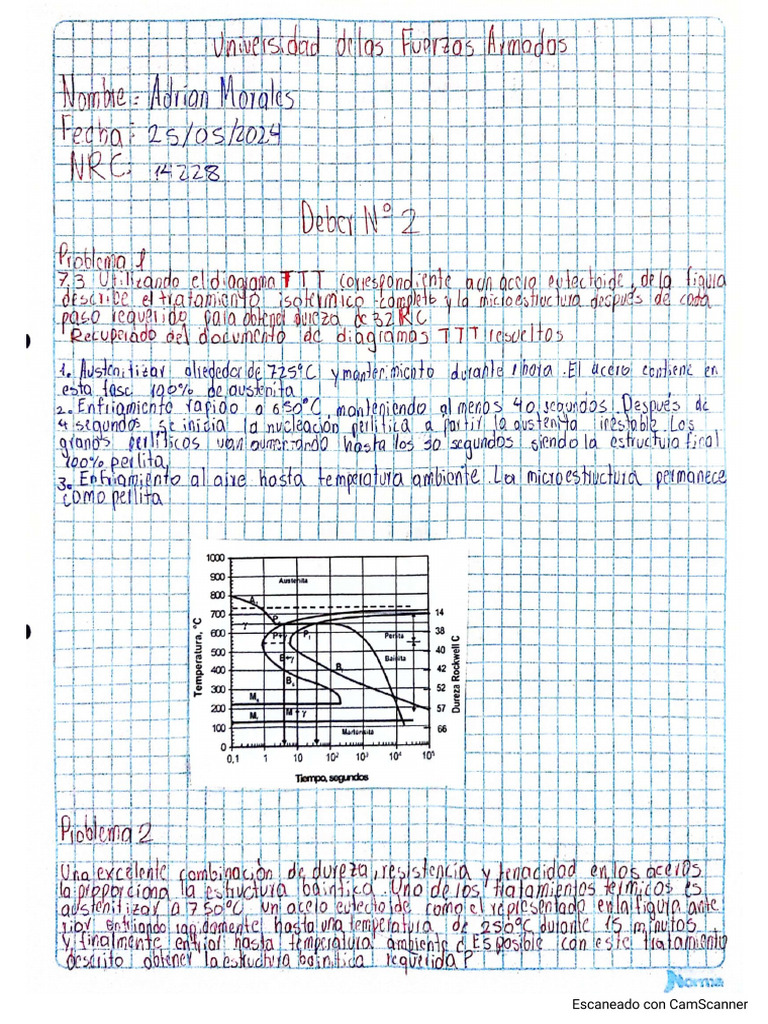 Universidad de las Fuerzas Armadas
Nombre: Adrian Morales
Fecha: 25/05/2024
NRC: 14228
Deber N° 2
Problema 1
7.3 Utilizando el diagrama TTT correspondiente a un acero eutectoide, de la figura
describe el tratamiento isotermico completo y la microestructura después de cada
paso requerido para obtener dureza de 32 RC
Recuperado del documento de diagramas TTT resueltos
1. Austenitizar alrededor de 725°C y mantenimiento durante 1 hora. El acero contiene en
esta fase 100% de austenita
2. Enfriamiento rapido a 650°C, manteniendo al menos 40 segundos. Después de
4 segundos se inicia la nucleación perlitica a partir la austenita inestable. Los
granos perliticos van aumentando hasta los 30 segundos siendo la estructura final
100% perlita,
3. Enfriamiento al aire hasta temperatura ambiente. La microestructura permanece
como perlita
1000
900
800
700
600
500
400
300
200
100
0
Temperatura, °C
0,1 1 10 10² 10³ 10⁴ 10⁵
Tiempo, segundos
Austenita
γ
P+γ
Pf
Perlita
Bainita
B+γ
Bs
Ms
M + γ
Martensita
14
38
40
42
52
57
66
Dureza Rockwell C
Problema 2
Una excelente combinación de dureza, resistencia y tenacidad en los aceros
la proporciona la estructura bainitica. Uno de los tratamientos termicos es
austenitizar a 750°C un acero eutectoide como el representado en la figura ante
rior, enfriando rapidamente hasta una temperatura de 250°C durante 15 minutos
y finalmente enfriar hasta temperatura ambiente ¿ES posible con este tratamiento
descrito obtener la estructura bainitica requerida?
Norma
Escaneado con CamScanner